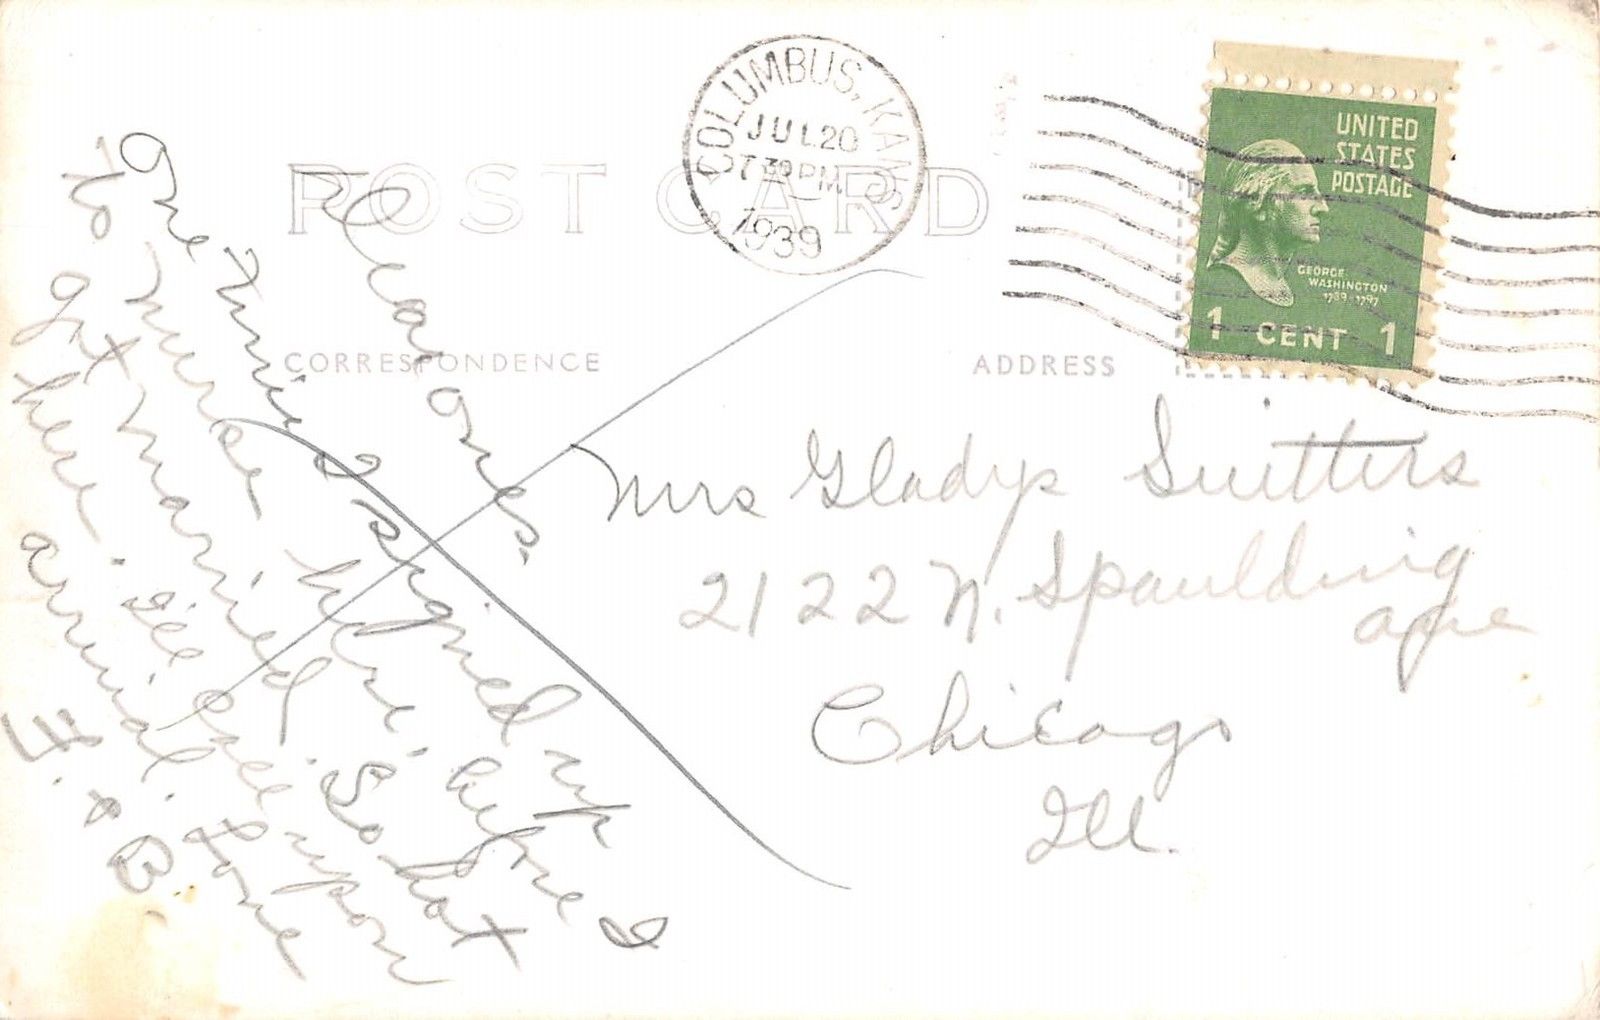 POST CARD
COLUMBUS, KANS.
JUL 20
7 30 PM
1939
UNITED
STATES
POSTAGE
GEORGE
WASHINGTON
1789-1797
1 CENT 1
CORRESPONDENCE
ADDRESS
Dear ones.
One time I signed up
to nurse here. before I
got married. So hot
here. Ill write upon
arrival. Love
F. & B.
Mrs Gladys Suitters
2122 N. Spaulding
ave
Chicago
Ill.